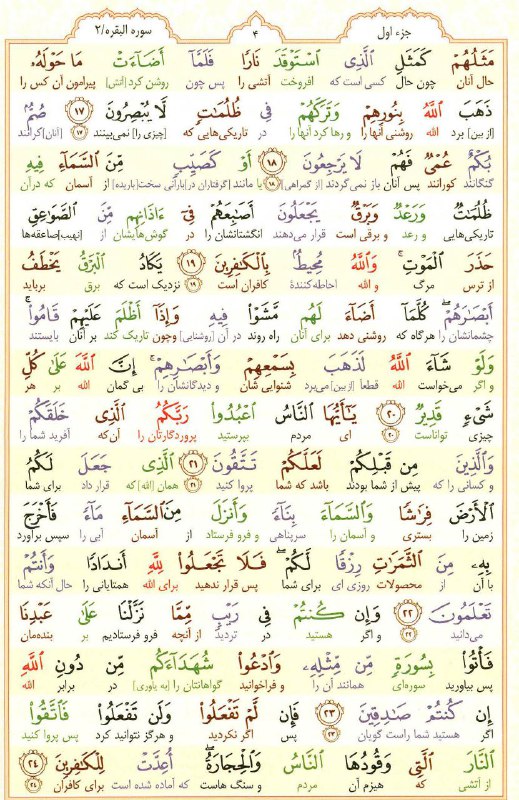 جزء اول ۴ سوره البقره/۲
مَثَلُهُمْ كَمَثَلِ الَّذِى اسْتَوْقَدَ نَارًا فَلَمَّآ أَضَآءَتْ مَا حَوْلَهُۥ
حال آنان چون حال کسی است که افروخت آتشی را پس چون روشن کرد [آتش] پیرامون آن کس را
ذَهَبَ اللَّهُ بِنُورِهِمْ وَتَرَكَهُمْ فِى ظُلُمَٰتٍ لَّا يُبْصِرُونَ ﴿١٧﴾ صُمٌّۢ
[از بین] برد الله روشنی آنها را و رها کرد آنها را در تاریکی‌هایی که [چیزی را] نمی‌بینند ۱۷ [آنان] کرانند
بُكْمٌ عُمْىٌ فَهُمْ لَا يَرْجِعُونَ ﴿١٨﴾ أَوْ كَصَيِّبٍ مِّنَ السَّمَآءِ فِيهِ
گنگانند کورانند پس آنان باز نمی‌گردند [از گمراهی] ۱۸ یا مانند [گرفتاران در] بارانی سخت [باریده] از آسمان که در آن
ظُلُمَٰتٌ وَرَعْدٌ وَبَرْقٌ يَجْعَلُونَ أَصَٰبِعَهُمْ فِىٓ ءَاذَانِهِم مِّنَ الصَّوَٰعِقِ
تاریکی‌هایی و رعد و برقی است قرار می‌دهند انگشتانشان را در گوش‌هایشان از [نهیب] صاعقه‌ها
حَذَرَ الْمَوْتِ ۚ وَاللَّهُ مُحِيطٌۢ بِالْكَٰفِرِينَ ﴿١٩﴾ يَكَادُ الْبَرْقُ يَخْطَفُ
از ترس مرگ و الله احاطه کنندهٔ کافران است ۱۹ نزدیک است که برق برباید
أَبْصَٰرَهُمْ ۖ كُلَّمَآ أَضَآءَ لَهُم مَّشَوْا۟ فِيهِ وَإِذَآ أَظْلَمَ عَلَيْهِمْ قَامُوا۟ ۚ
چشمانشان را هرگاه که روشنی دهد برای آنان راه روند در آن [روشنایی] وچون تاریک کند بر آنان بایستند
وَلَوْ شَآءَ اللَّهُ لَذَهَبَ بِسَمْعِهِمْ وَأَبْصَٰرِهِمْ ۚ إِنَّ اللَّهَ عَلَىٰ كُلِّ
و اگر می‌خواست الله قطعاً [ازبین] می‌برد شنوایی شان و دیدگانشان را بی گمان الله بر هر
شَىْءٍ قَدِيرٌ ﴿٢٠﴾ يَٰٓأَيُّهَا النَّاسُ اعْبُدُوا۟ رَبَّكُمُ الَّذِى خَلَقَكُمْ
چیزی تواناست ۲۰ ای مردم بپرستید پروردگارتان را آن‌که آفرید شما را
وَالَّذِينَ مِن قَبْلِكُمْ لَعَلَّكُمْ تَتَّقُونَ ﴿٢١﴾ الَّذِى جَعَلَ لَكُمُ
و کسانی را که پیش از شما بودند باشد که شما پروا کنید ۲۱ همان [الله] که قرار داد برای شما
الْأَرْضَ فِرَٰشًا وَالسَّمَآءَ بِنَآءً وَأَنزَلَ مِنَ السَّمَآءِ مَآءً فَأَخْرَجَ
زمین را بستری و آسمان را سرپناهی و فرو فرستاد از آسمان آبی را سپس برآورد
بِهِۦ مِنَ الثَّمَرَٰتِ رِزْقًا لَّكُمْ ۖ فَلَا تَجْعَلُوا۟ لِلَّهِ أَندَادًا وَأَنتُمْ
با آن از محصولات روزی ای برای شما پس قرار ندهید برای الله همتایانی را حال آنکه شما
تَعْلَمُونَ ﴿٢٢﴾ وَإِن كُنتُمْ فِى رَيْبٍ مِّمَّا نَزَّلْنَا عَلَىٰ عَبْدِنَا
می‌دانید ۲۲ و اگر هستید در تردید از آنچه فرو فرستادیم بر بنده‌مان
فَأْتُوا۟ بِسُورَةٍ مِّن مِّثْلِهِۦ وَادْعُوا۟ شُهَدَآءَكُم مِّن دُونِ اللَّهِ
پس بیاورید سوره‌ای همانند آن را و فراخوانید گواهانتان را [به یاوری] در برابر الله
إِن كُنتُمْ صَٰدِقِينَ ﴿٢٣﴾ فَإِن لَّمْ تَفْعَلُوا۟ وَلَن تَفْعَلُوا۟ فَاتَّقُوا۟
اگر هستید شما راست گویان ۲۳ پس اگر نکردید و هرگز نتوانید کرد پس پروا کنید
النَّارَ الَّتِى وَقُودُهَا النَّاسُ وَالْحِجَارَةُ ۖ أُعِدَّتْ لِلْكَٰفِرِينَ ﴿٢٤﴾
از آتشی که هیزم آن مردم و سنگ هاست که آماده شده است برای کافران ۲۴